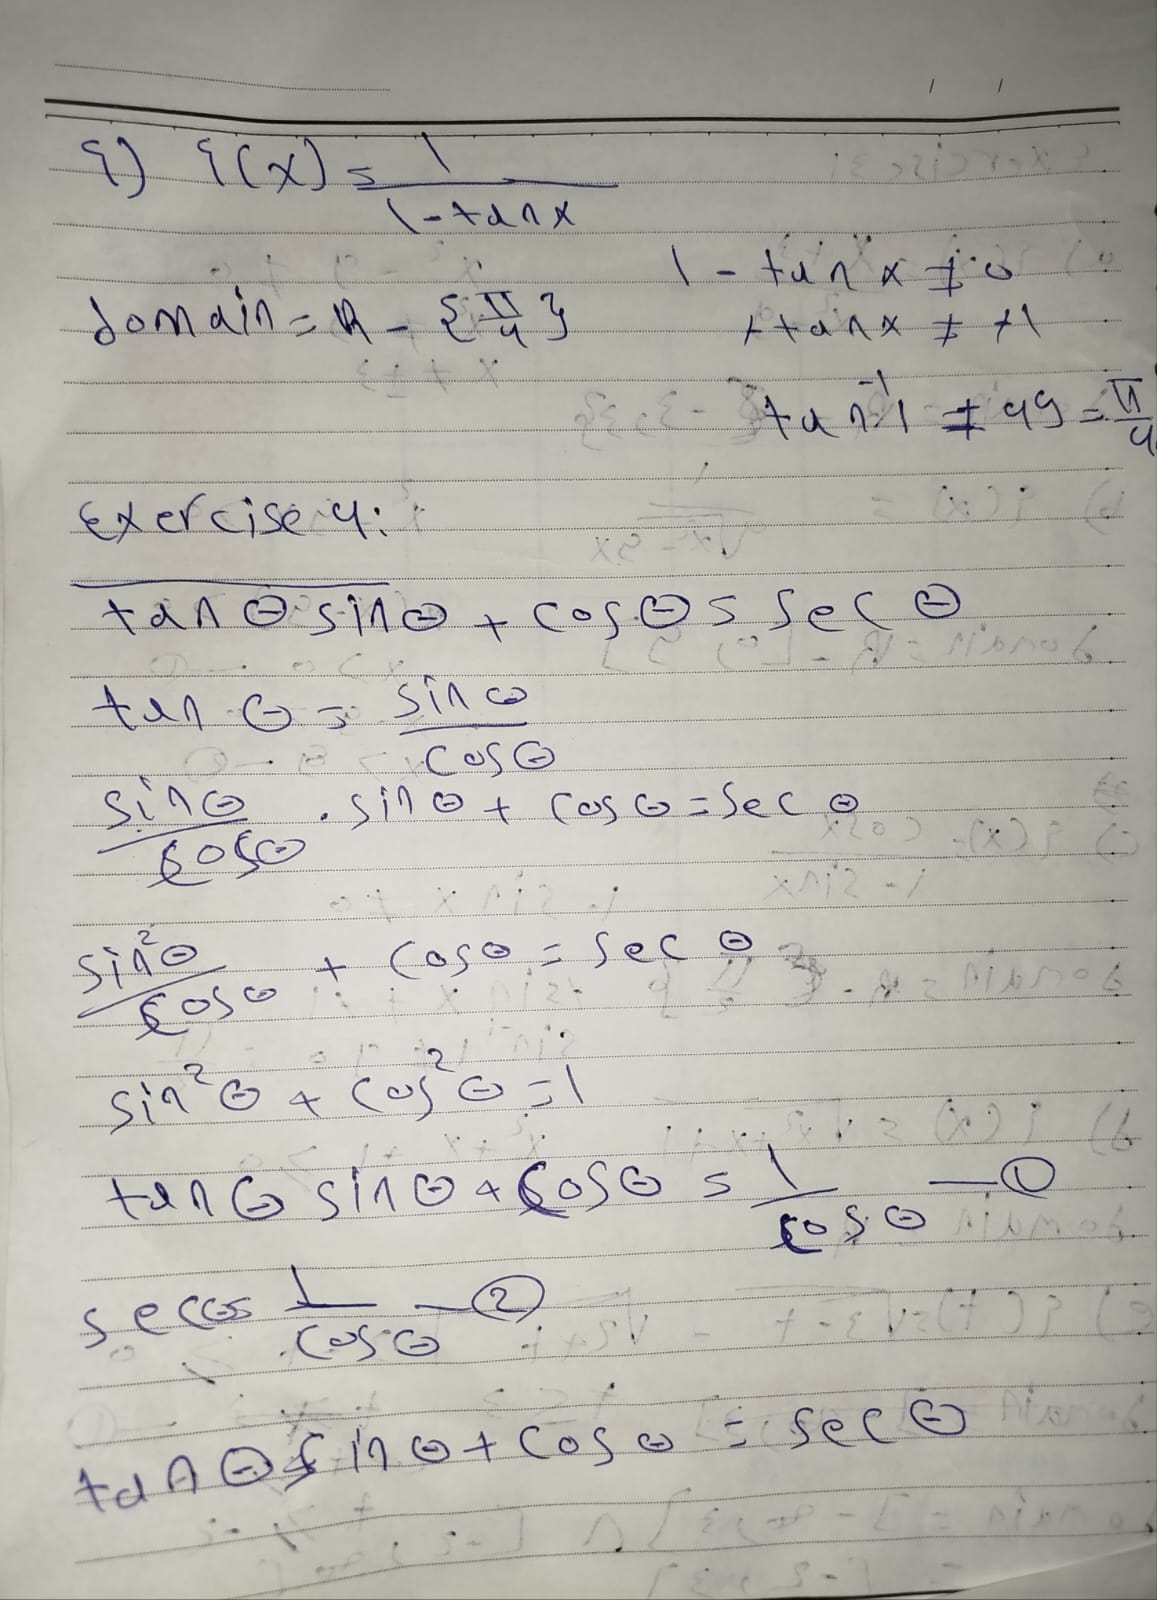 f) f(x) = 1/(1-tanx)
1 - tan x ≠ 0
domain = R - {π/4}
+tanx ≠ +1
tan⁻¹1 ≠ 45 = π/4
Exercise 4:
tan θ sinθ + cosθ = sec θ
tan θ = sinθ/cosθ
sinθ/cosθ . sinθ + cosθ = sec θ
sin²θ/cosθ + cosθ = sec θ
sin²θ + cos²θ = 1
tanθ sinθ + cosθ = 1/cosθ — ①
sec 1/cosθ — ②
tanθ sinθ + cosθ = secθ